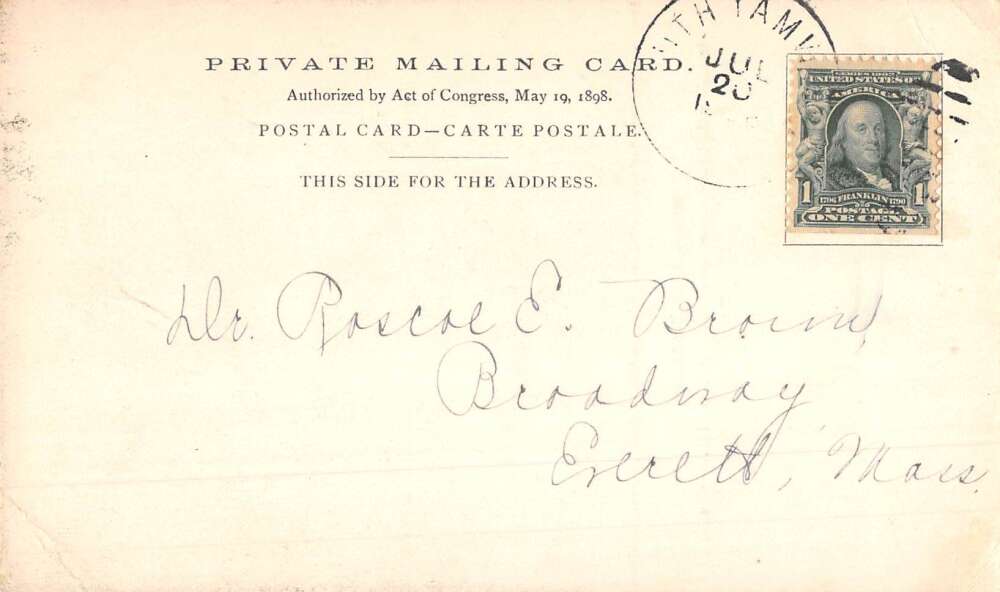 PRIVATE MAILING CARD.
Authorized by Act of Congress, May 19, 1898.
POSTAL CARD—CARTE POSTALE.
THIS SIDE FOR THE ADDRESS.
JUL
20
SERIES 1902
UNITED STATES OF
AMERICA
1 1706 FRANKLIN 1790 1
POSTAGE
ONE CENT
Dr. Roscoe E. Brown,
Broadway
Everett, Mass.